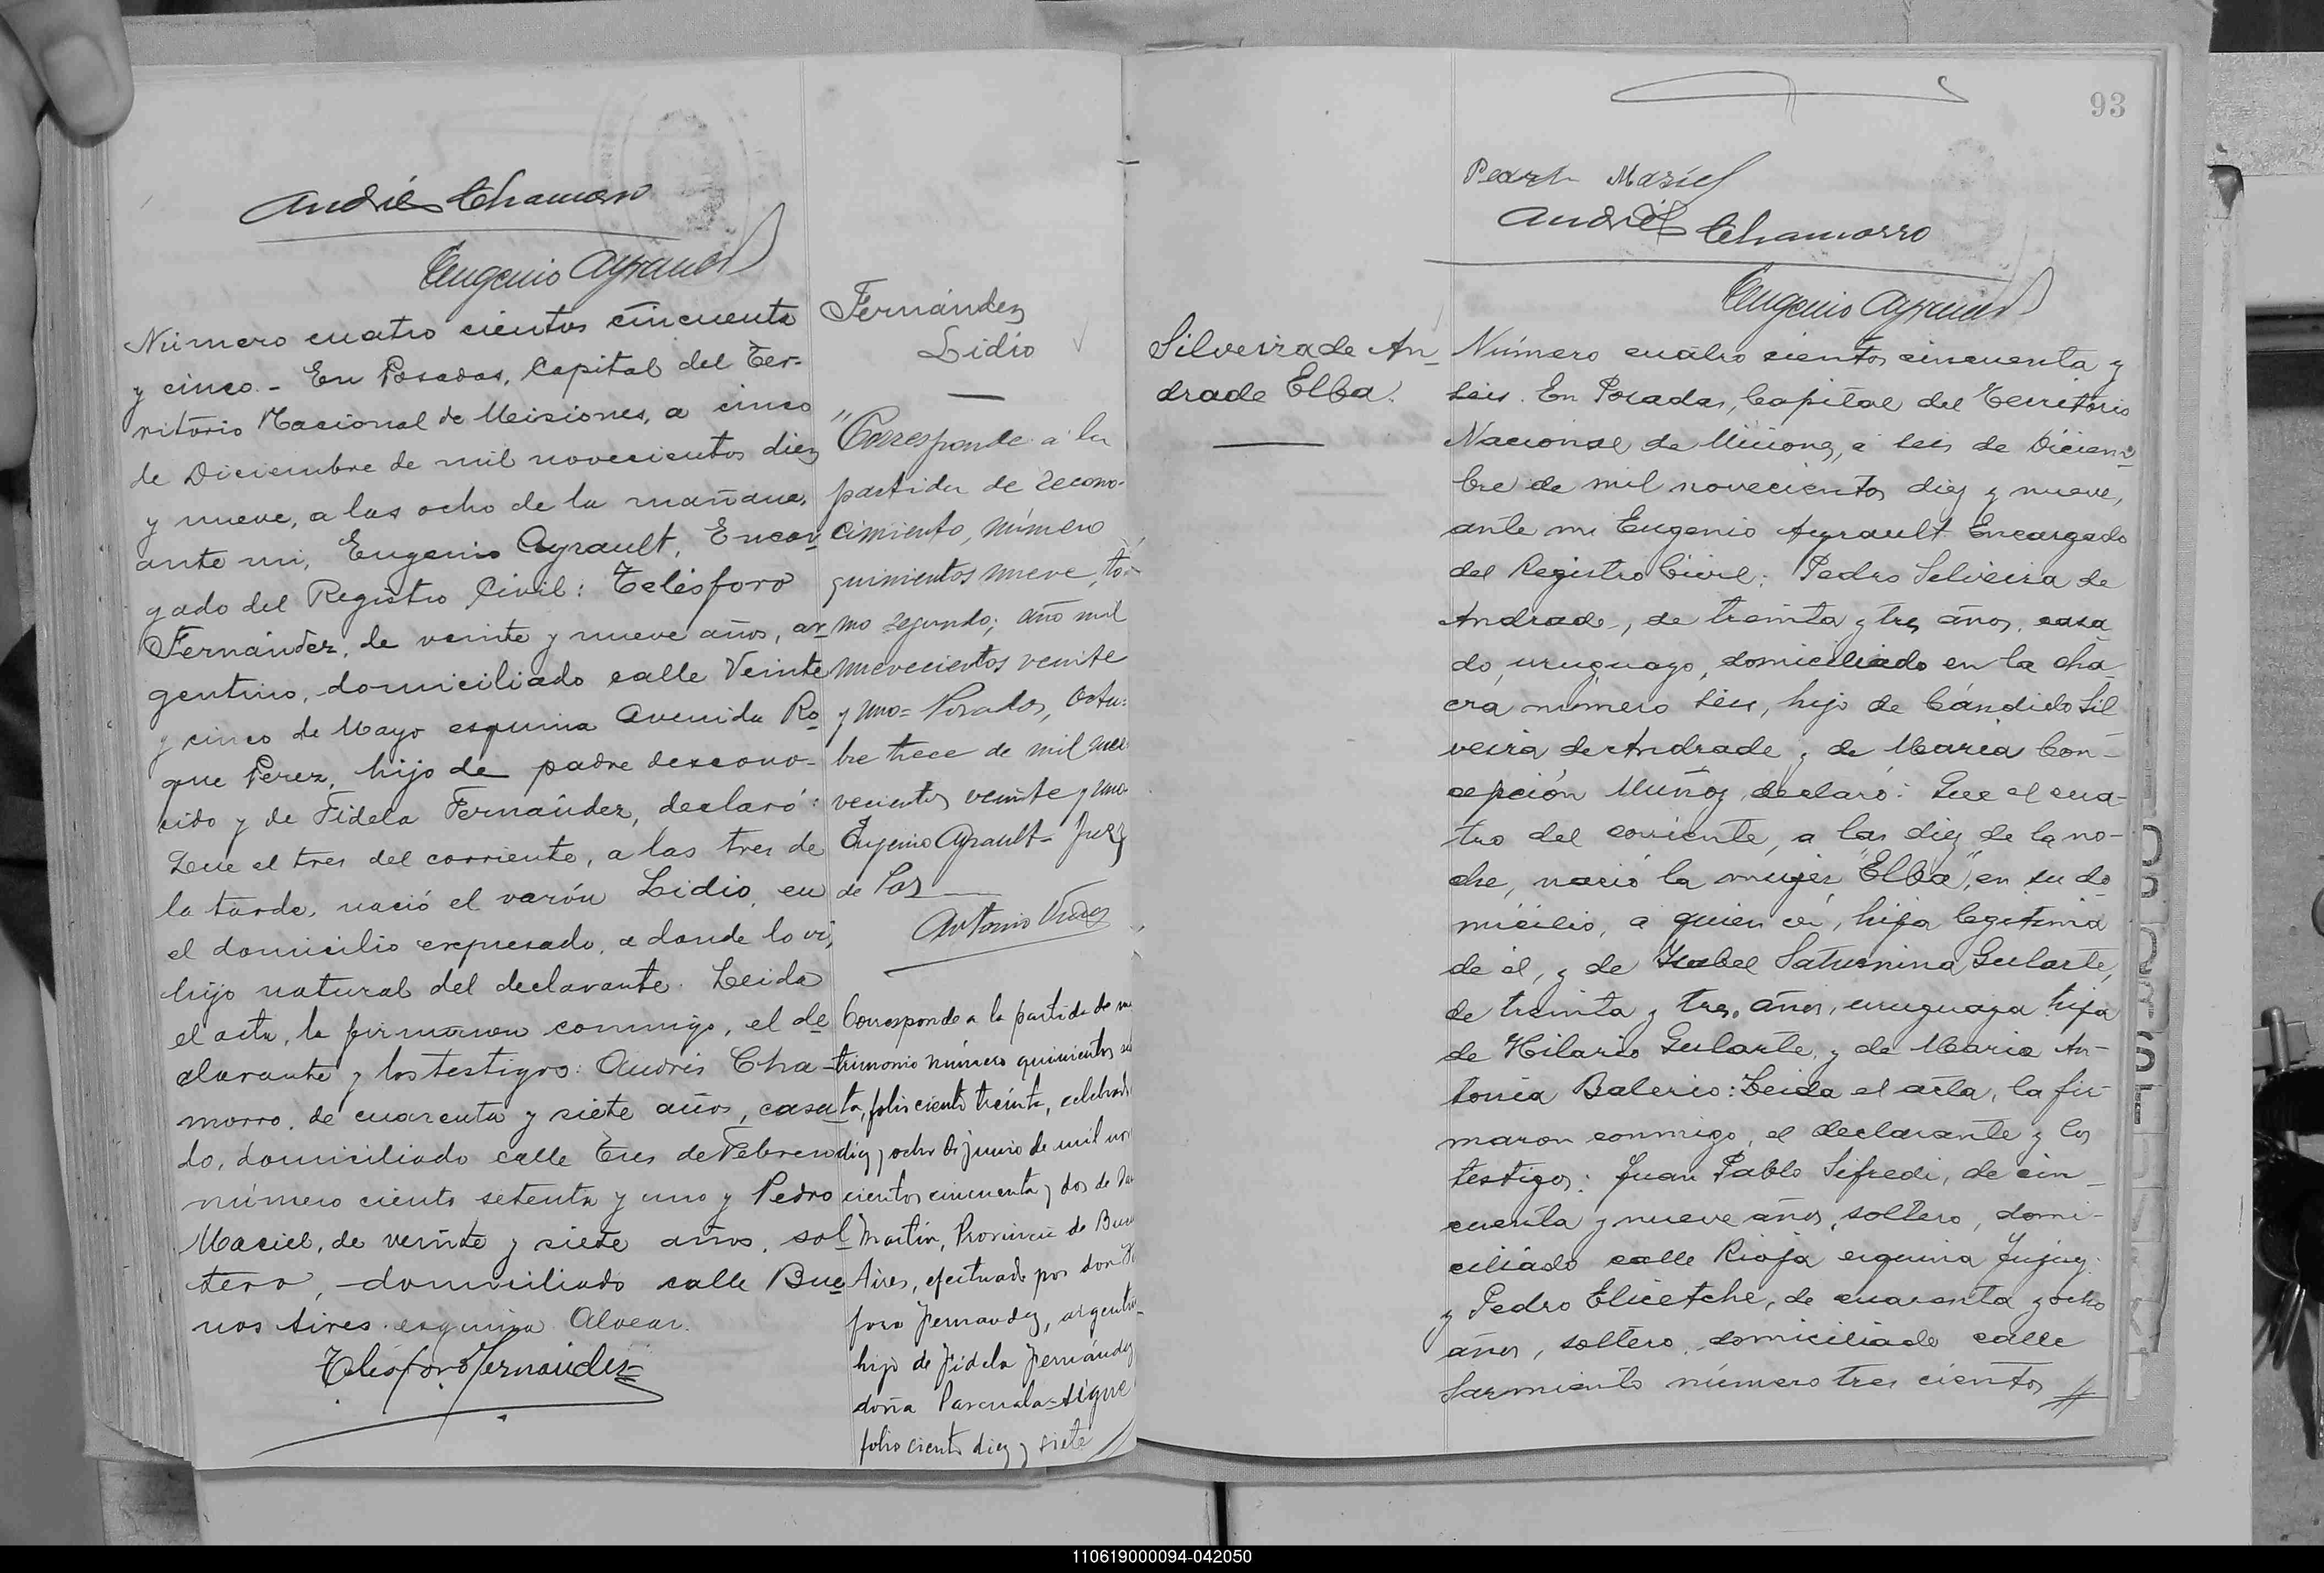 Andrés Chamorro
Eugenio Ayrault
Número cuatro cientos cincuenta
y cinco.- En Posadas, Capital del Ter-
ritorio Nacional de Misiones, a cinco
de Diciembre de mil novecientos diez
y nueve, a las ocho de la mañana,
ante mi, Eugenio Ayrault, Encar
gado del Registro Civil: Telésforo
Fernández, de veinte y nueve años, ar
gentino, domiciliado calle Veinte
y cinco de Mayo esquina Avenida Ro
que Perez, hijo de padre descono-
cido y de Fidela Fernández, declaró:
Que el tres del corriente, a las tres de
la tarde, nació el varón Lidio, en
el domicilio expresado, a donde lo vi,
hijo natural del declarante. Leida
el acta, la firmaron conmigo, el de
clarante y los testigos: Andrés Cha-
morro, de cuarenta y siete años, casa
do, domiciliado calle Tres de Febrero
número ciento setenta y uno y Pedro
Maciel, de veinte y siete años, sol
tero, domiciliado calle Bue
nos Aires esquina Alvear.
Telésforo Fernández
Fernández
Lidio
"Corresponde a la
partida de recono-
cimiento, número
quinientos nueve, to-
mo segundo; año mil
nuevecientos veinte
y uno= Posadas, Octu-
bre trece de mil nue
vecientos veinte y uno
Eugenio Ayrault- Juez
de Paz
Antonio
Corresponde a la partida de ma
trimonio número quinientos se
ta, folio ciento treinta, celebrado
diez y ocho de junio de mil nov
cientos cincuenta y dos de
Martín, Provincia de Buen
Aires, efectuado por don
foro Fernandez, argentin
hijo de Fidela Fernández
doña Pascuala=sigue
folio ciento diez y siete
93
Pedro Maciel
Andrés Chamorro
Eugenio Ayrault
Silveira de An
drade Elba.
Número cuatro cientos cincuenta y
seis. En Posadas, Capital del Territorio
Nacional de Misiones, a seis de Diciem
bre de mil novecientos diez y nueve,
ante mi Eugenio Ayrault Encargado
del Registro Civil: Pedro Silveira de
Andrade, de treinta y tres años, casa
do, uruguayo, domiciliado en la cha
cra número seis, hijo de Cándido Sil
veira de Andrade y de María Con-
cepción Muñoz, declaró: Que el cua-
tro del corriente, a las diez de la no-
che, nació la mujer "Elba", en su do
micilio, a quien vi, hija legitima
de él, y de Isabel Saturnina Gularte,
de treinta y tres años, uruguaya hija
de Hilario Gularte, y de Maria An-
tonia Balerio: Leida el acta, la fir-
maron conmigo, el declarante y los
testigos: Juan Pablo Sifredi, de cin
cuenta y nueve años, soltero, domi-
ciliado calle Rioja esquina Jujuy:
y Pedro Elicetche, de cuarenta y ocho
años, soltero, domiciliado calle
Sarmiento número tres cientos //
110619000094-042050